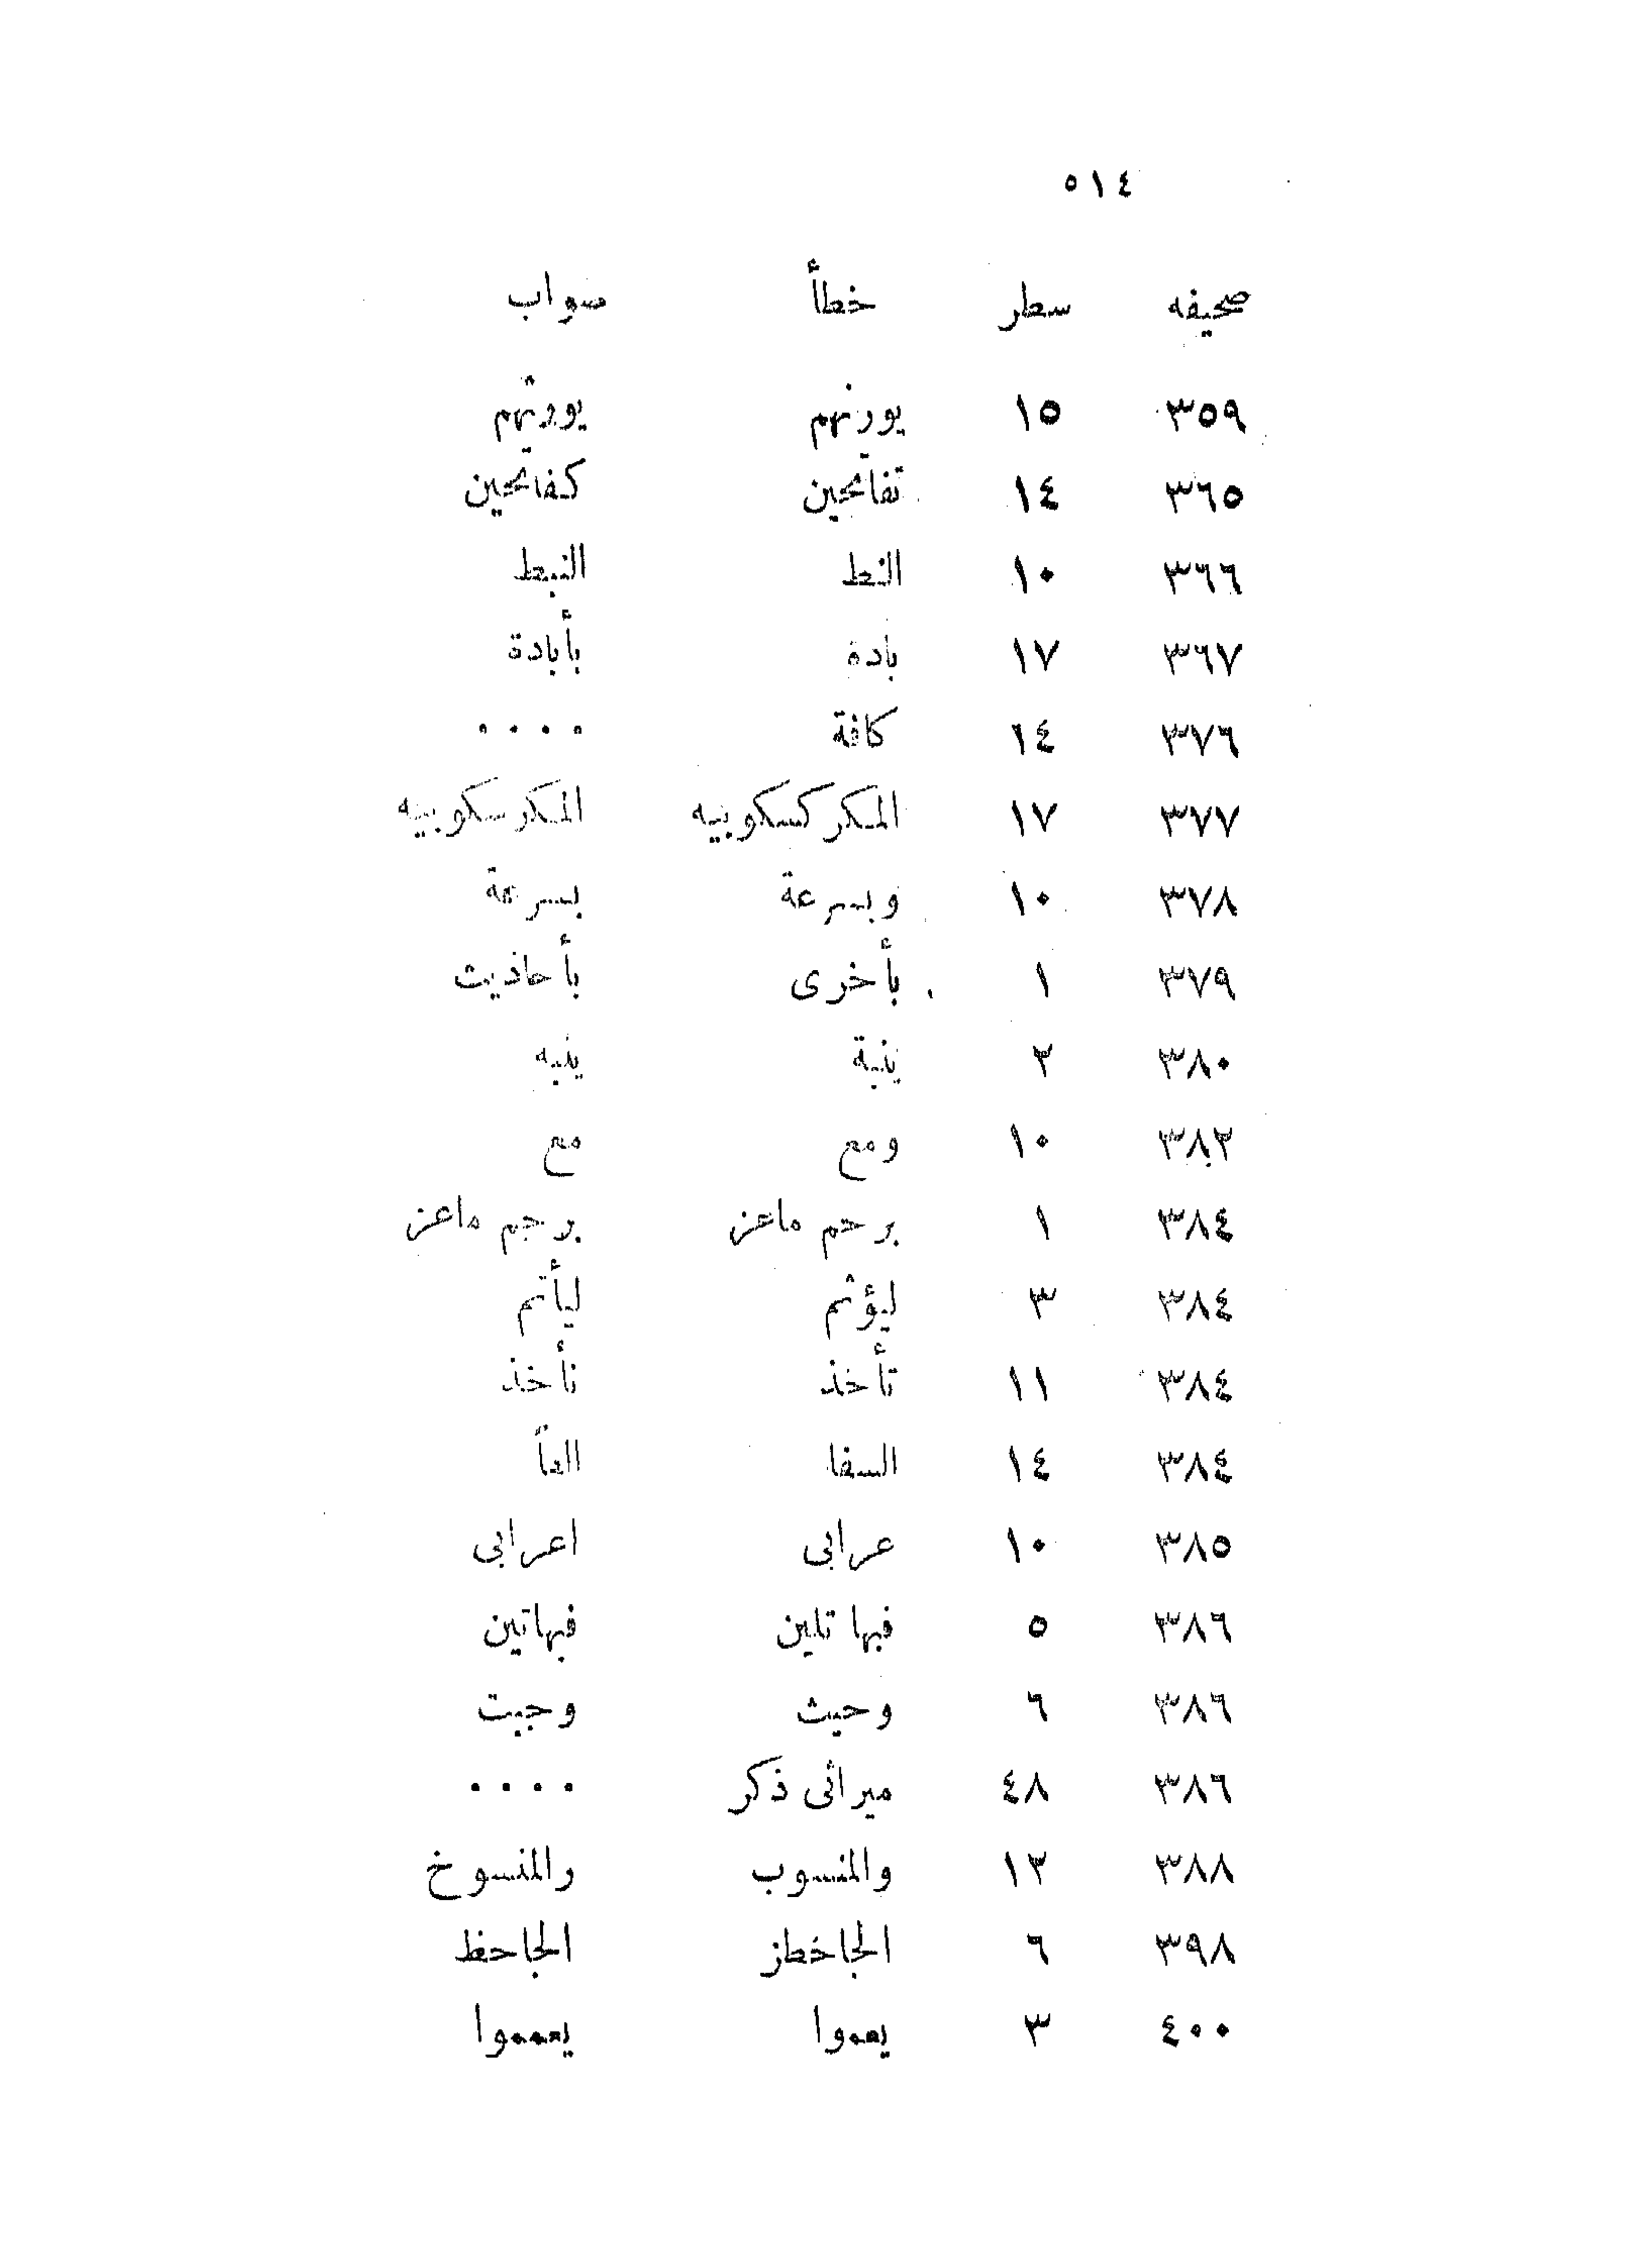 ٥١٤
صحيفه سطر خطأ صواب
٣٥٩ ١٥ يورنهم يورثهم
٣٦٥ ١٤ تفاتحين كفاتحين
٣٦٦ ١٠ النط النبط
٣٦٧ ١٧ بادة بأبادة
٣٧٦ ١٤ كافة ٠٠٠٠
٣٧٧ ١٧ المكركسكوبيه المكرسكوبيه
٣٧٨ ١٠ وبسرعة بسرعة
٣٧٩ ١ بأخرى بأحاذيث
٣٨٠ ٢ ينبة ينبه
٣٨٢ ١٠ ومع مع
٣٨٤ ١ برحم ماعز برجم ماعز
٣٨٤ ٣ ليؤثم ليأتم
٣٨٤ ١١ تأخذ نأخذ
٣٨٤ ١٤ السفا
٣٨٥ ١٠ عرابى اعرابى
٣٨٦ ٥ فبها تلين فبهاتين
٣٨٦ ٦ وحيث وجبت
٣٨٦ ٤٨ ميراثى ذكر ٠٠٠٠
٣٨٨ ١٢ والمنسوب والمنسوخ
٣٩٨ ٦ الجاخطز الجاحظ
٤٠٠ ٣ يعموا يعمموا